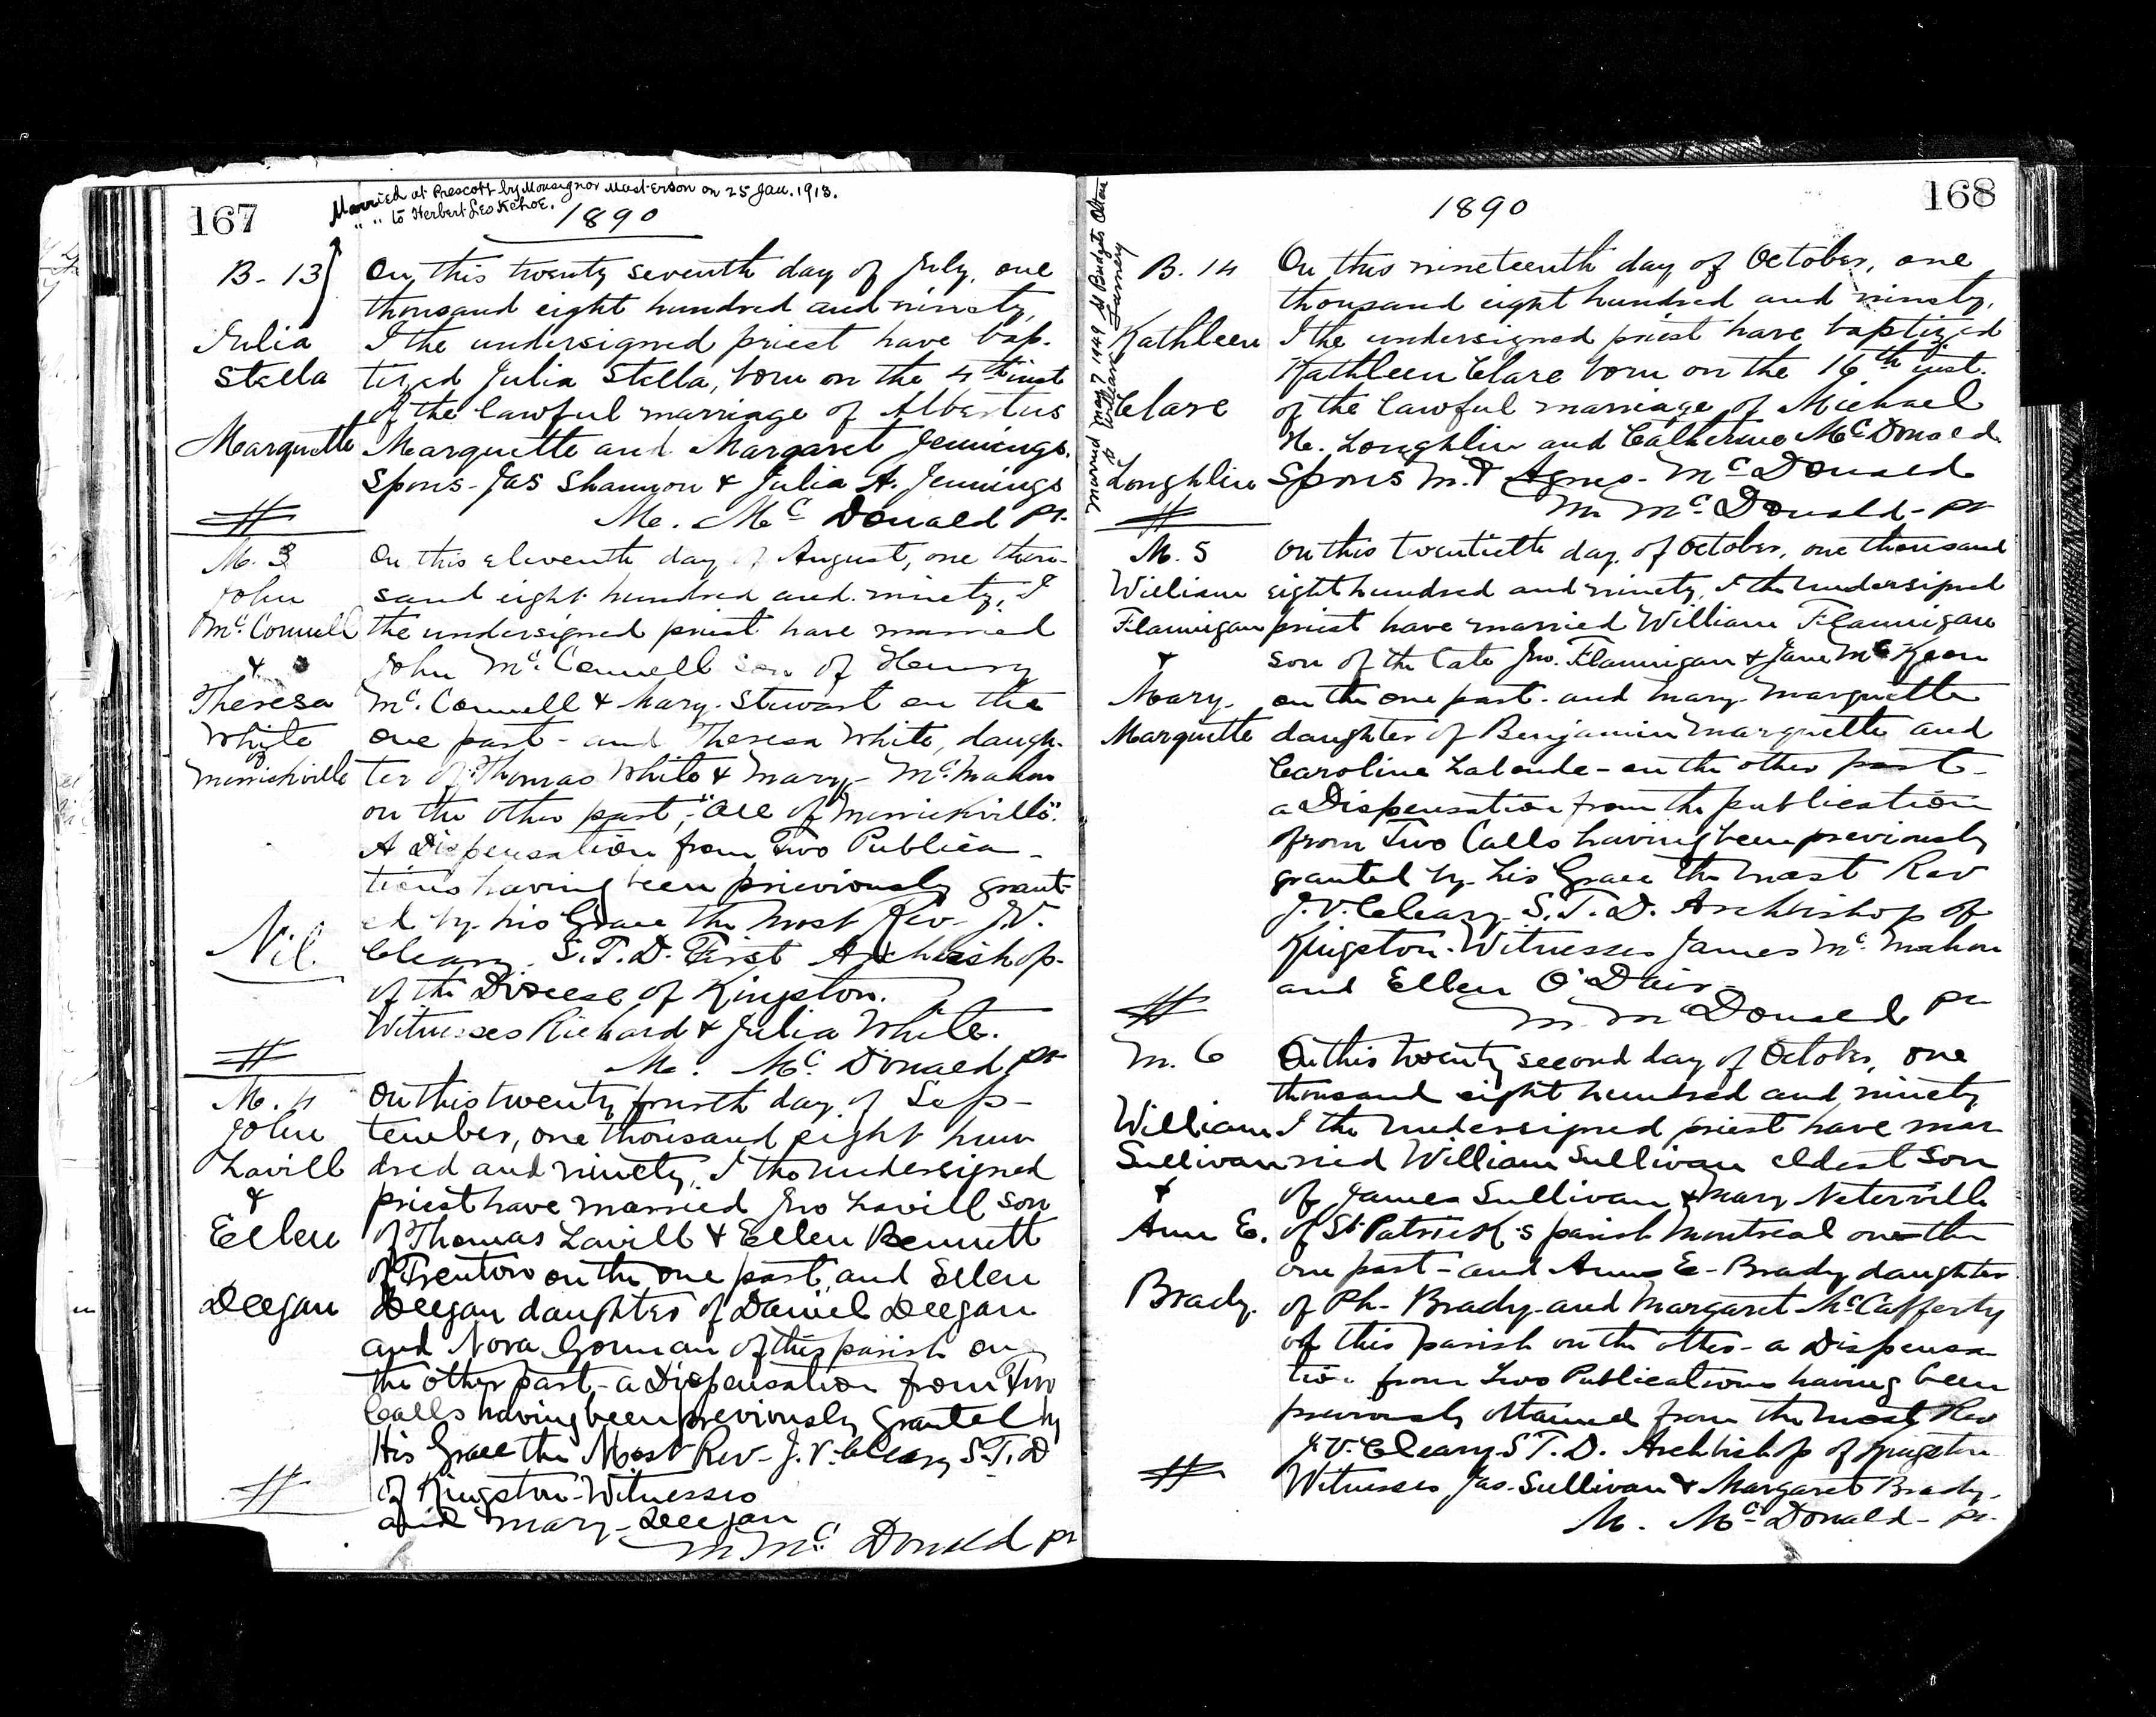 167
Married at Prescott by Monsignor Masterson on 25 Jan. 1913.
" " to Herbert Leo Kehoe.
1890
B. 13
Julia
Stella
Marquette
On this twenty seventh day of July, one
thousand eight hundred and ninety,
I the undersigned priest have bap-
tized Julia Stella, born on the 4th inst
of the lawful marriage of Albertus
Marquette and Margaret Jennings.
Spons- Jas Shannon & Julia A. Jennings
M. Mc Donald Pr.
M. 3
John
Mc. Connell
&
Theresa
White
Merrickville
Nil.
On this eleventh day of August, one thou-
sand eight hundred and ninety, I
the undersigned priest have married
John Mc. Connell son of Henry
Mc. Connell & Mary Stewart on the
one part - and Theresa White, daugh-
ter of Thomas White & Mary- McMahon
on the other part,- "all of Merrickville".
A Dispensation from Two Publica-
tions having been prieviously grant-
ed by his Grace the Most Rev- J.V.
Cleary. S.T.D. First Archbishop-
of the Diocese of Kingston.
Witnesses Richard & Julia White.
M. Mc Donald Pr
M. 4
John
Lavill
&
Ellen
Deegan
On this twenty fourth day of Sep-
tember, one thousand eight hun
dred and ninety, I the undersigned
priest have married Jno Lavill son
of Thomas Lavill & Ellen Bennett
of Trenton on the one part, and Ellen
Deegan daughter of Daniel Deegan
and Nora Gorman of this parish on
the other part - a Dispensation from Two
Calls having been previously granted by
His Grace the Most Rev- J.V. Cleary S.T.D
of Kingston- Witnesses
and Mary- Deegan
M Mc Donald Pr
168
1890
Married May 7 1949 St Bridgets
to William
B. 14
Kathleen
Clare
Loughlin
On this nineteenth day of October, one
thousand eight hundred and ninety,
I the undersigned priest have baptized
Kathleen Clare born on the 16th inst.
of the lawful marriage of Michael
H. Loughlin and Catherine McDonald.
Spons M. & Agnes- Mc Donald
M Mc. Donald- Pr
M. 5
William
Flannigan
&
Mary
Marquette
On this twentieth day of October, one thousand
eight hundred and ninety, I the undersigned
priest have married William Flannigan
son of the late Jno. Flannigan & Jane McKeon
on the one part- and Mary Marquette
daughter of Benjamin Marquette and
Caroline Lalonde- on the other part-
a Dispensation from the publication
from Two Calls having been previously
granted by His Grace the Most Rev
J.V. Cleary- S.T.D. Archbishop of
Kingston. Witnesses James Mc. Mahon
and Ellen
M. Mc Donald Pr
M. 6
William
Sullivan
&
Ann E.
Brady.
On this twenty second day of October, one
thousand eight hundred and ninety
I the undersigned priest have mar
ried William Sullivan eldest son
of James Sullivan & Mary Neterville
of St. Patrick's parish Montreal on the
one part- and Anne E- Brady daughter
of Ph- Brady and Margaret McCafferty
of this parish on the other- a Dispensa
tion from Two Publications having been
previously obtained from the Most Rev
J.V. Cleary- S.T.D. Archbishop of Kingston
Witnesses Jas. Sullivan & Margaret Brady.
M. Mc Donald- Pr.